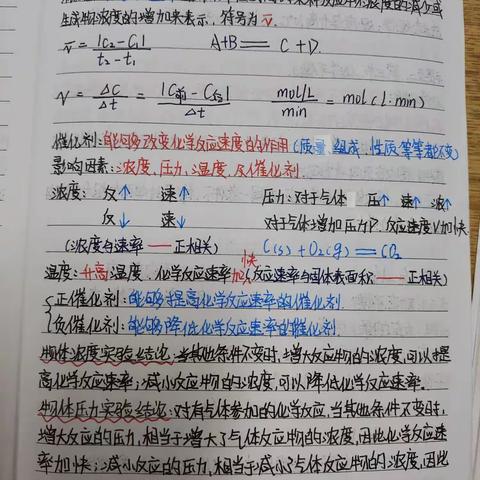 生成物浓度的增加来表示，符号为v̅.
v̅ = |C₂-C₁| / t₂-t₁   A+B == C+D
V = ΔC/Δt = |C前-C后|/Δt   mol/L / min = mol(l·min)
催化剂：能够改变化学反应速度的作用(质量、组成、性质等等都不变)
影响因素：浓度、压力、温度、及催化剂.
浓度：反↑ 速↑ 压力：对于气体 压↑ 速↑ 浓↑
反↓ 速↓ 对于气体增加压力P 反应速度V加快
(浓度与速率——正相关) C(s)+O₂(g)==CO₂
温度：升高温度，化学反应速率加快(反应速率与固体表面积——正相关)
正催化剂：能够提高化学反应速率的催化剂.
负催化剂：能够降低化学反应速率的催化剂.
物体浓度实验结论：当其他条件不变时，增大反应物的浓度，可以提
高化学反应速率；减小反应物的浓度，可以降低化学反应速率.
物体压力实验结论：对有气体参加的化学反应，当其他条件不变时，
增大反应的压力，相当于增大了气体反应物的浓度，因此化学反应速
率加快；减小反应的压力，相当于减小了气体反应物的浓度，因此